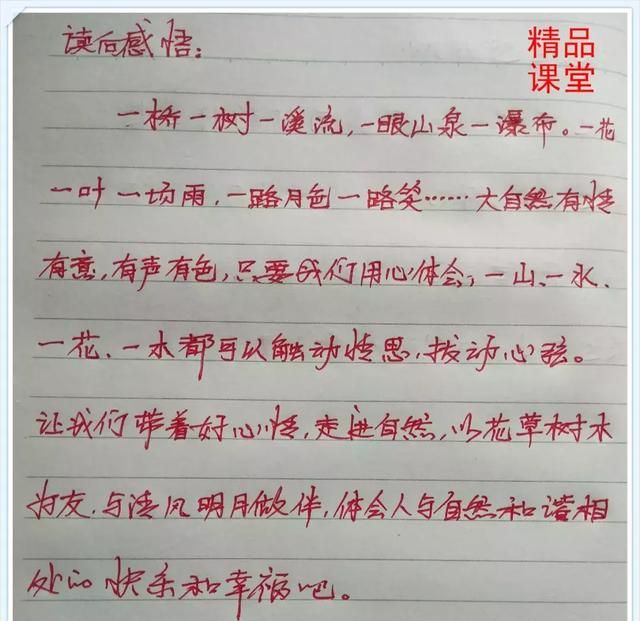 读后感悟：
精品
课堂
一桥一树一溪流，一眼山泉一瀑布。一花
一叶一场雨，一路月色一路笑……大自然有情
有意，有声有色，只要我们用心体会，一山、一水、
一花、一木都可以触动情思，拔动心弦。
让我们带着好心情，走进自然，以花草树木
为友，与清风明月做伴，体会人与自然和谐相
处的快乐和幸福吧。